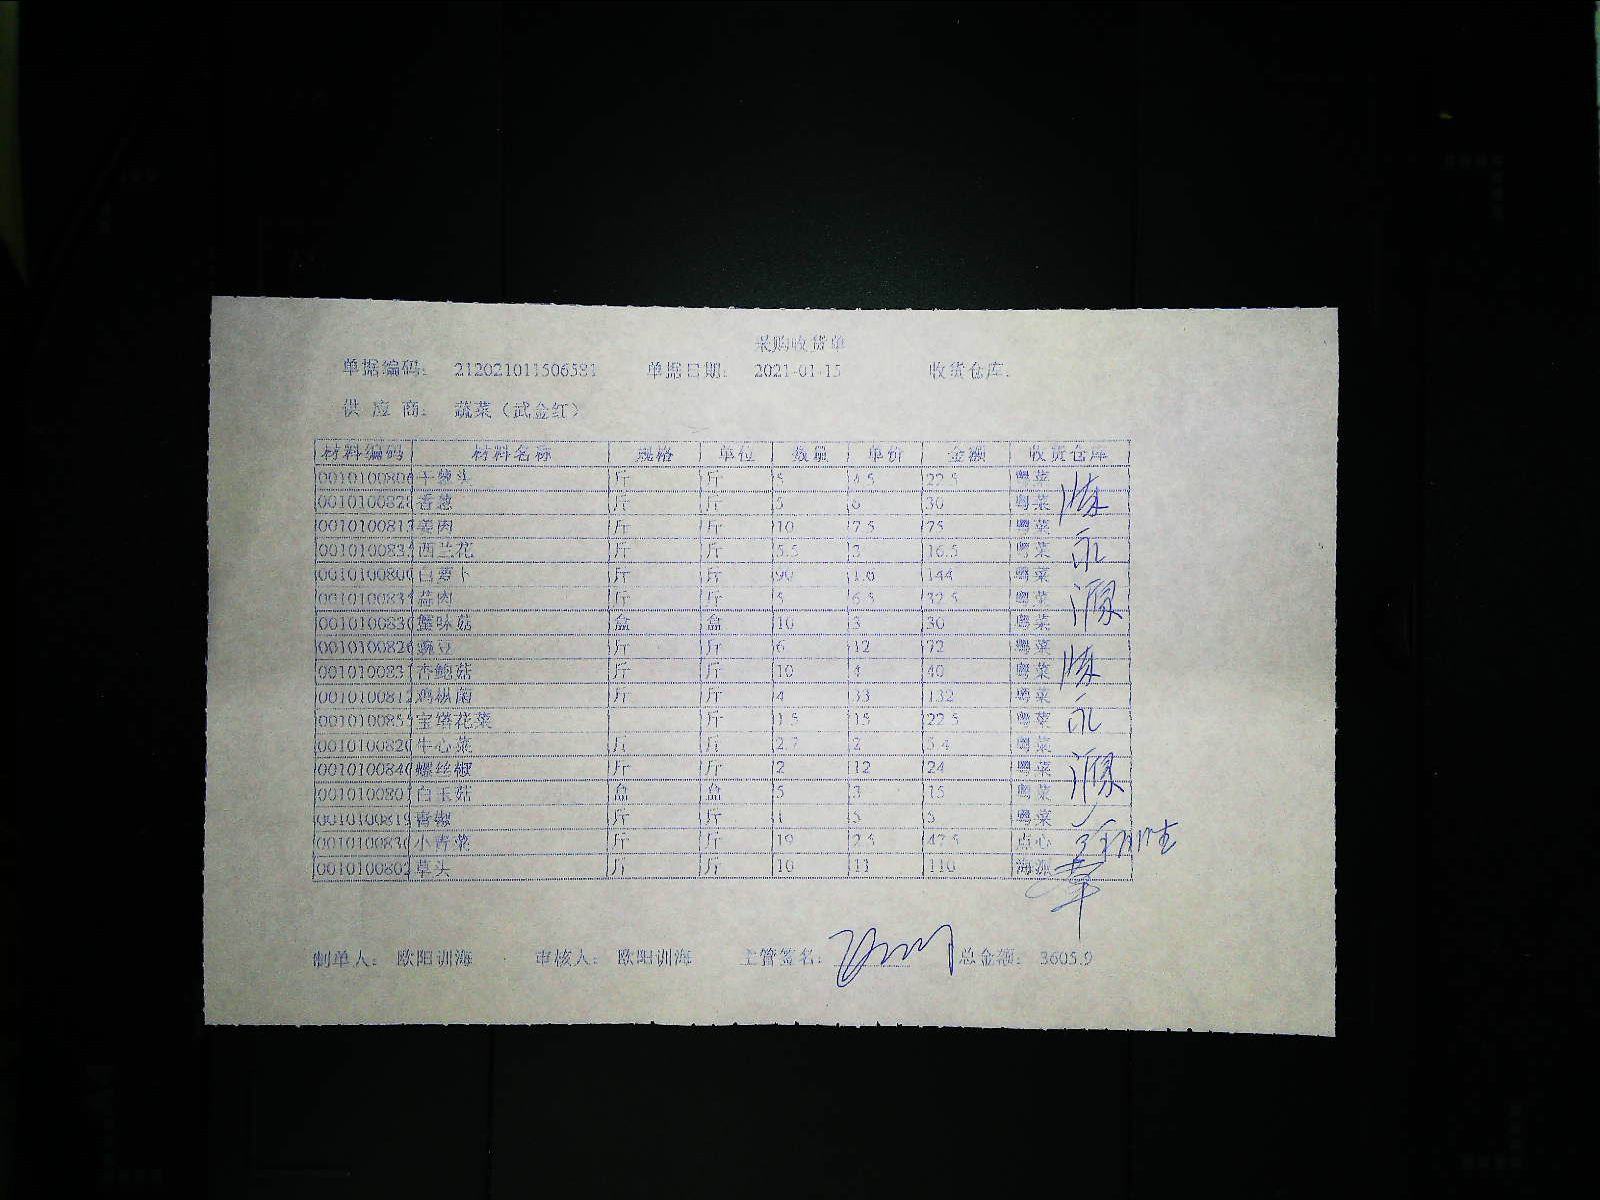 采购收货单
单据编码： 212021011506581 单据日期： 2021-01-15 收货仓库：
供 应 商： 蔬菜（武金红）
材料编码 材料名称 规格 单位 数量 单价 金额 收货仓库
0010100806 干葱头 斤 斤 5 4.5 22.5 粤菜
001010082 香葱 斤 斤 5 6 30 粤菜
001010081 姜肉 斤 斤 10 7.5 75 粤菜
001010083 西兰花 斤 斤 5.5 3 16.5 粤菜
001010080 白萝卜 斤 斤 90 1.6 144 粤菜
001010083 蒜肉 斤 斤 5 6.5 32.5 粤菜
001010083 蟹味菇 盒 盒 10 3 30 粤菜
001010082 豌豆 斤 斤 6 12 72 粤菜
001010083 杏鲍菇 斤 斤 10 4 40 粤菜
001010081 鸡枞菌 斤 斤 4 33 132 粤菜
001010085 宝塔花菜 斤 1.5 15 22.5 粤菜
001010082 牛心菜 斤 斤 2.7 2 5.4 粤菜
001010084 螺丝椒 斤 斤 2 12 24 粤菜
001010080 白玉菇 盒 盒 5 3 15 粤菜
001010081 青椒 斤 斤 1 5 5 粤菜
001010083 小青菜 斤 斤 19 2.5 47.5 点心
0010100802 草头 斤 斤 10 11 110 海派
制单人： 欧阳训海 审核人： 欧阳训海 主管签名： 总金额： 3605.9